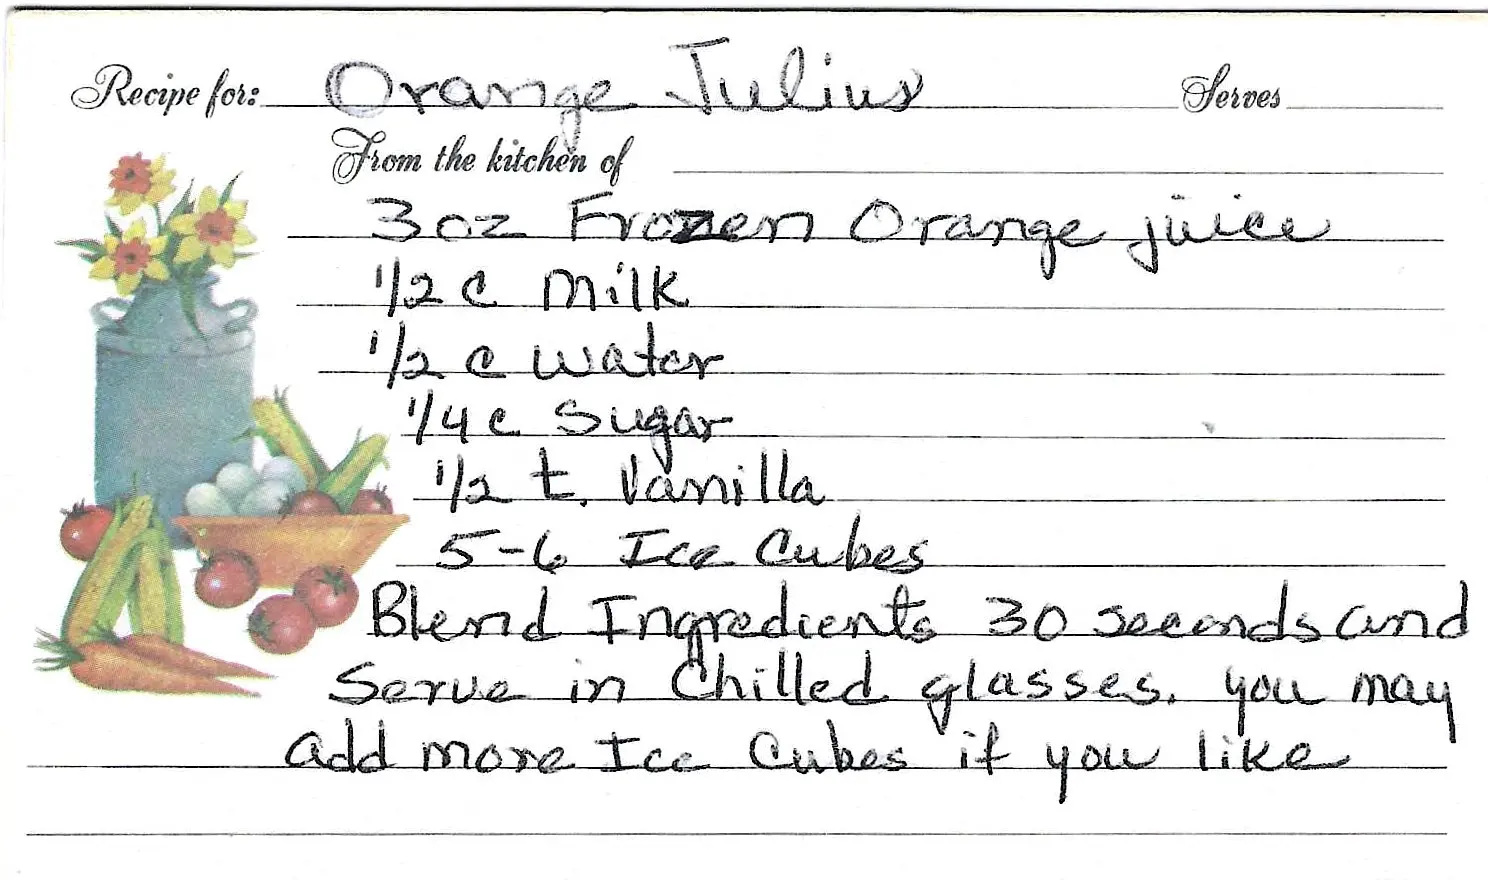 Recipe for: Orange Julius Serves
From the kitchen of
3 oz Frozen Orange juice
1/2 c milk
1/2 c water
1/4 c Sugar
1/2 t. Vanilla
5-6 Ice Cubes
Blend Ingredients 30 seconds and
Serve in Chilled glasses. you may
add more Ice Cubes if you like